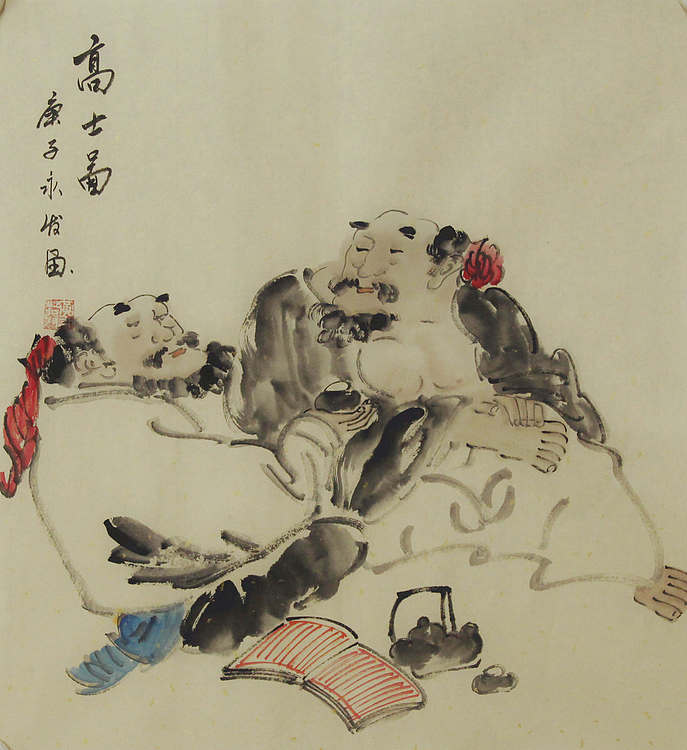 高士啚
庚子永发画